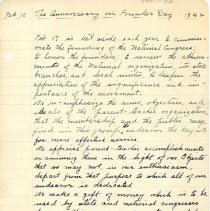 Feb 10 The Anniversary on Founder Day 1942
Feb 17 is set aside each year to commem-
orate the founding of the National Congress,
to honor the founders, to renew the allegi-
ances of the National organization, its state
branches, and local units, to deepen the
appreciation of the significance and im-
portance of the movement.
We re-emphasize the aims, objectives, and
ideals of the parent-teacher organization
that the membership and the public may
find in this group endeavor the key note
for more effective service.
We appraise parent-teacher accomplishments
examining them in the light of our Objects
that we may not in our enthusiasm,
depart from that purpose to which all of our
endeavor is dedicated
We make a gift of money which is to be
used by state and national congresses